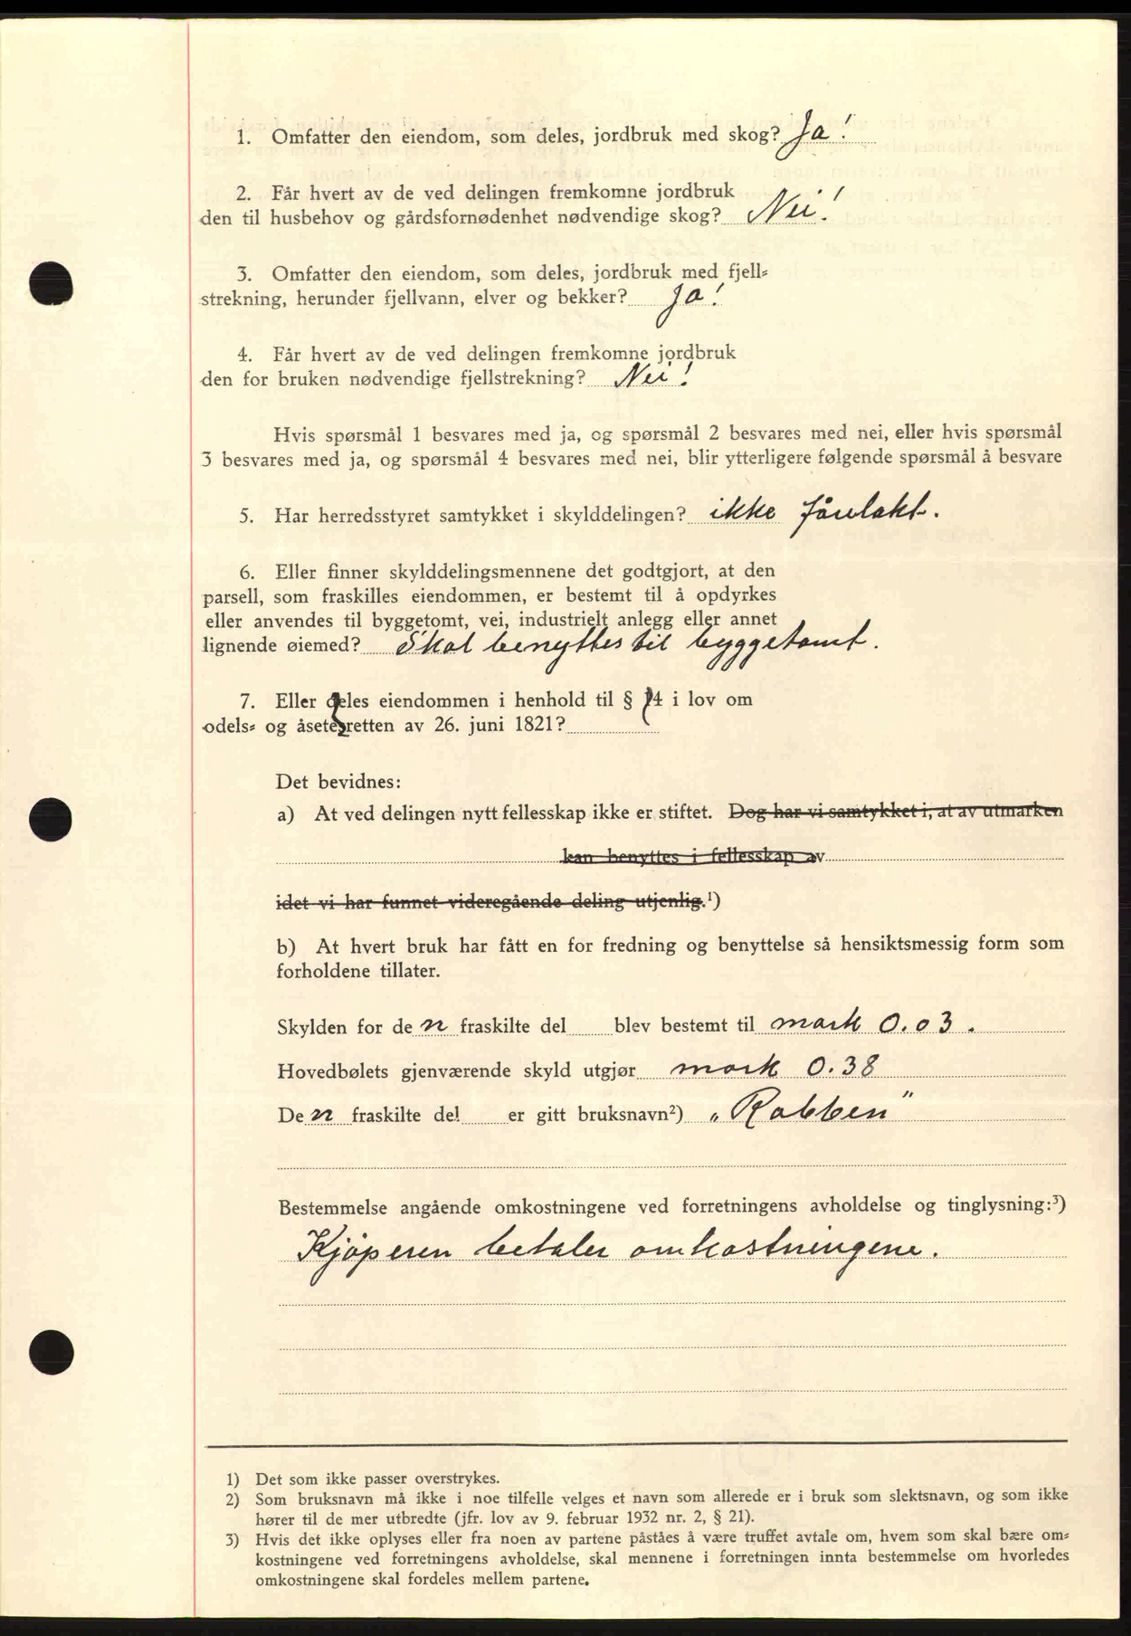 1. Omfatter den eiendom, som deles, jordbruk med skog? Ja!
2. Får hvert av de ved delingen fremkomne jordbruk
den til husbehov og gårdsfornødenhet nødvendige skog? Nei!
3. Omfatter den eiendom, som deles, jordbruk med fjell=
strekning, herunder fjellvann, elver og bekker? Ja!
4. Får hvert av de ved delingen fremkomne jordbruk
den for bruken nødvendige fjellstrekning? Nei!
Hvis spørsmål 1 besvares med ja, og spørsmål 2 besvares med nei, eller hvis spørsmål
3 besvares med ja, og spørsmål 4 besvares med nei, blir ytterligere følgende spørsmål å besvare
5. Har herredsstyret samtykket i skylddelingen? ikke
6. Eller finner skylddelingsmennene det godtgjort, at den
parsell, som fraskilles eiendommen, er bestemt til å opdyrkes
eller anvendes til byggetomt, vei, industrielt anlegg eller annet
lignende øiemed? Skal benyttes til byggetomt.
7. Eller deles eiendommen i henhold til § 14 i lov om
odels= og åsetesretten av 26. juni 1821?
Det bevidnes:
a) At ved delingen nytt fellesskap ikke er stiftet. Dog har vi samtykket i, at av utmarken
kan benyttes i fellesskap av
idet vi har funnet videregående deling utjenlig.¹)
b) At hvert bruk har fått en for fredning og benyttelse så hensiktsmessig form som
forholdene tillater.
Skylden for den fraskilte del blev bestemt til mark 0.03.
Hovedbølets gjenværende skyld utgjør mark 0.38
Den fraskilte del er gitt bruksnavn²) „Rabben"
Bestemmelse angående omkostningene ved forretningens avholdelse og tinglysning:³)
Kjøperen betaler omkostningene.
1) Det som ikke passer overstrykes.
2) Som bruksnavn må ikke i noe tilfelle velges et navn som allerede er i bruk som slektsnavn, og som ikke
hører til de mer utbredte (jfr. lov av 9. februar 1932 nr. 2, § 21).
3) Hvis det ikke oplyses eller fra noen av partene påståes å være truffet avtale om, hvem som skal bære om=
kostningene ved forretningens avholdelse, skal mennene i forretningen innta bestemmelse om hvorledes
omkostningene skal fordeles mellem partene.